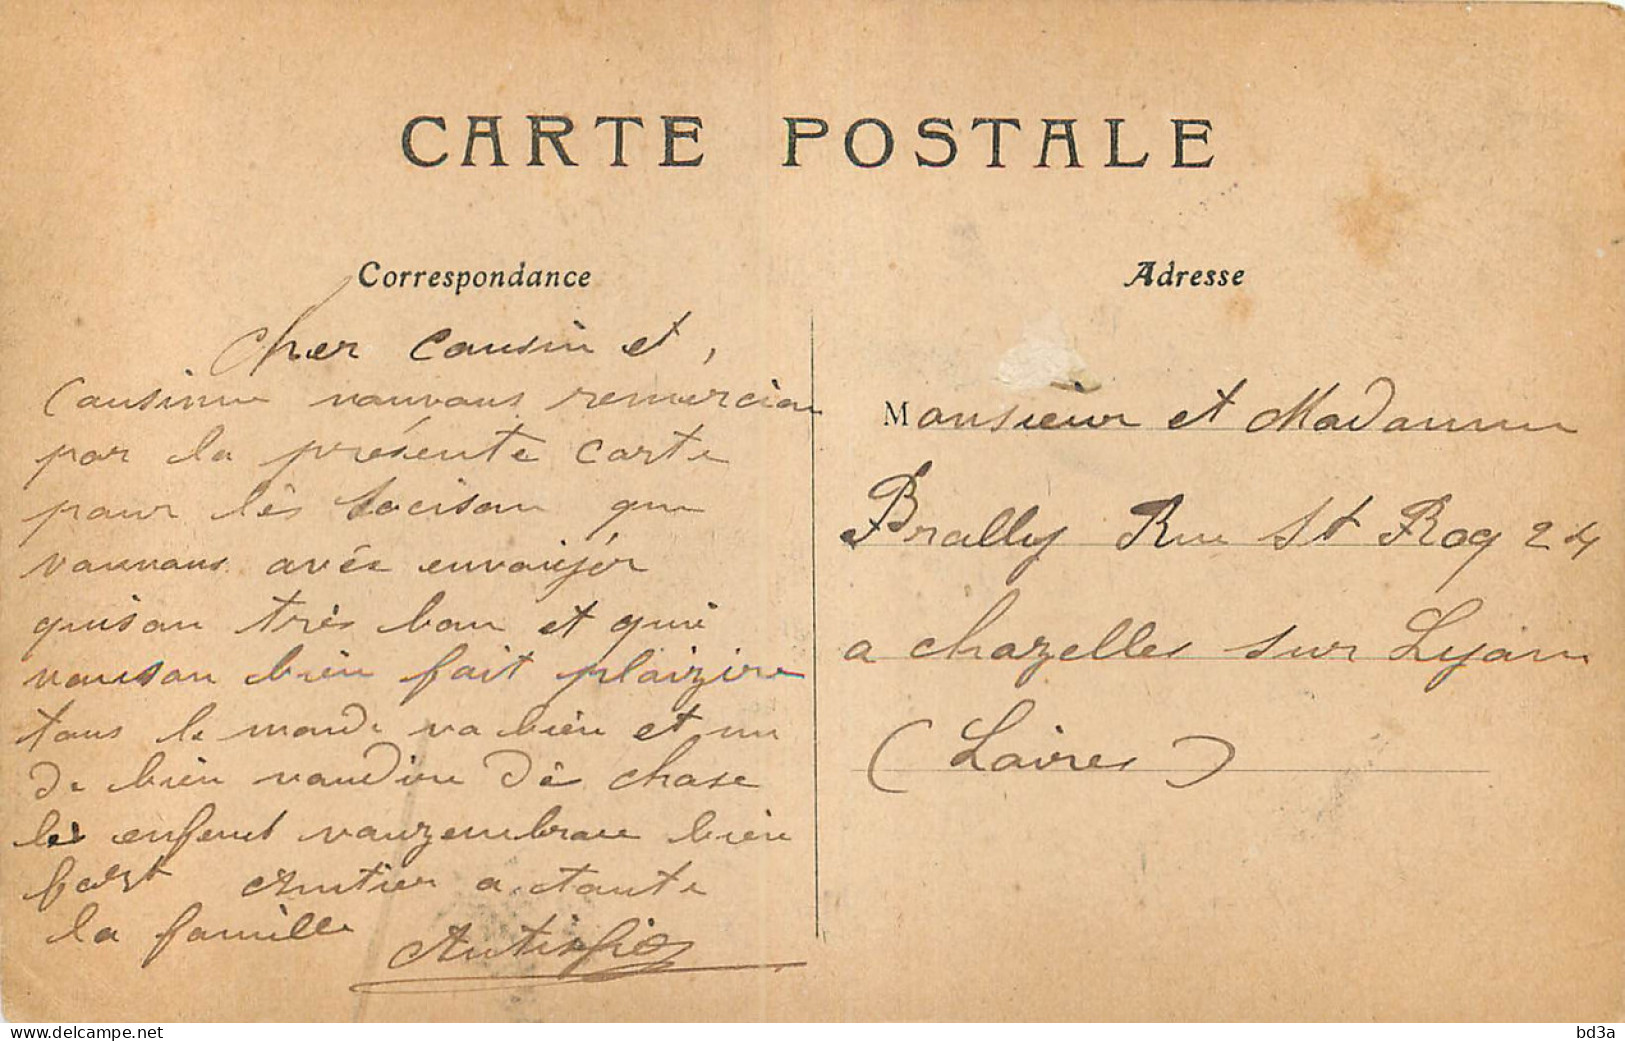 CARTE POSTALE
Correspondance
cher cousin et,
Cousinne nouvous remercion
par la présente carte
pour lès socison que
vounous avée envoiyér
quison très bon et qui
nouson bien fait plaizire
tous le monde va bien et un
de bien vandire dè chose
les enfent vouzembrase bien
fort Amitier a toute
la famille
Adresse
Monsieur et Madamme
Brally Rue St Roq 24
a chazelles sur Lyon
(Loires)
delcampe.net
bd3a